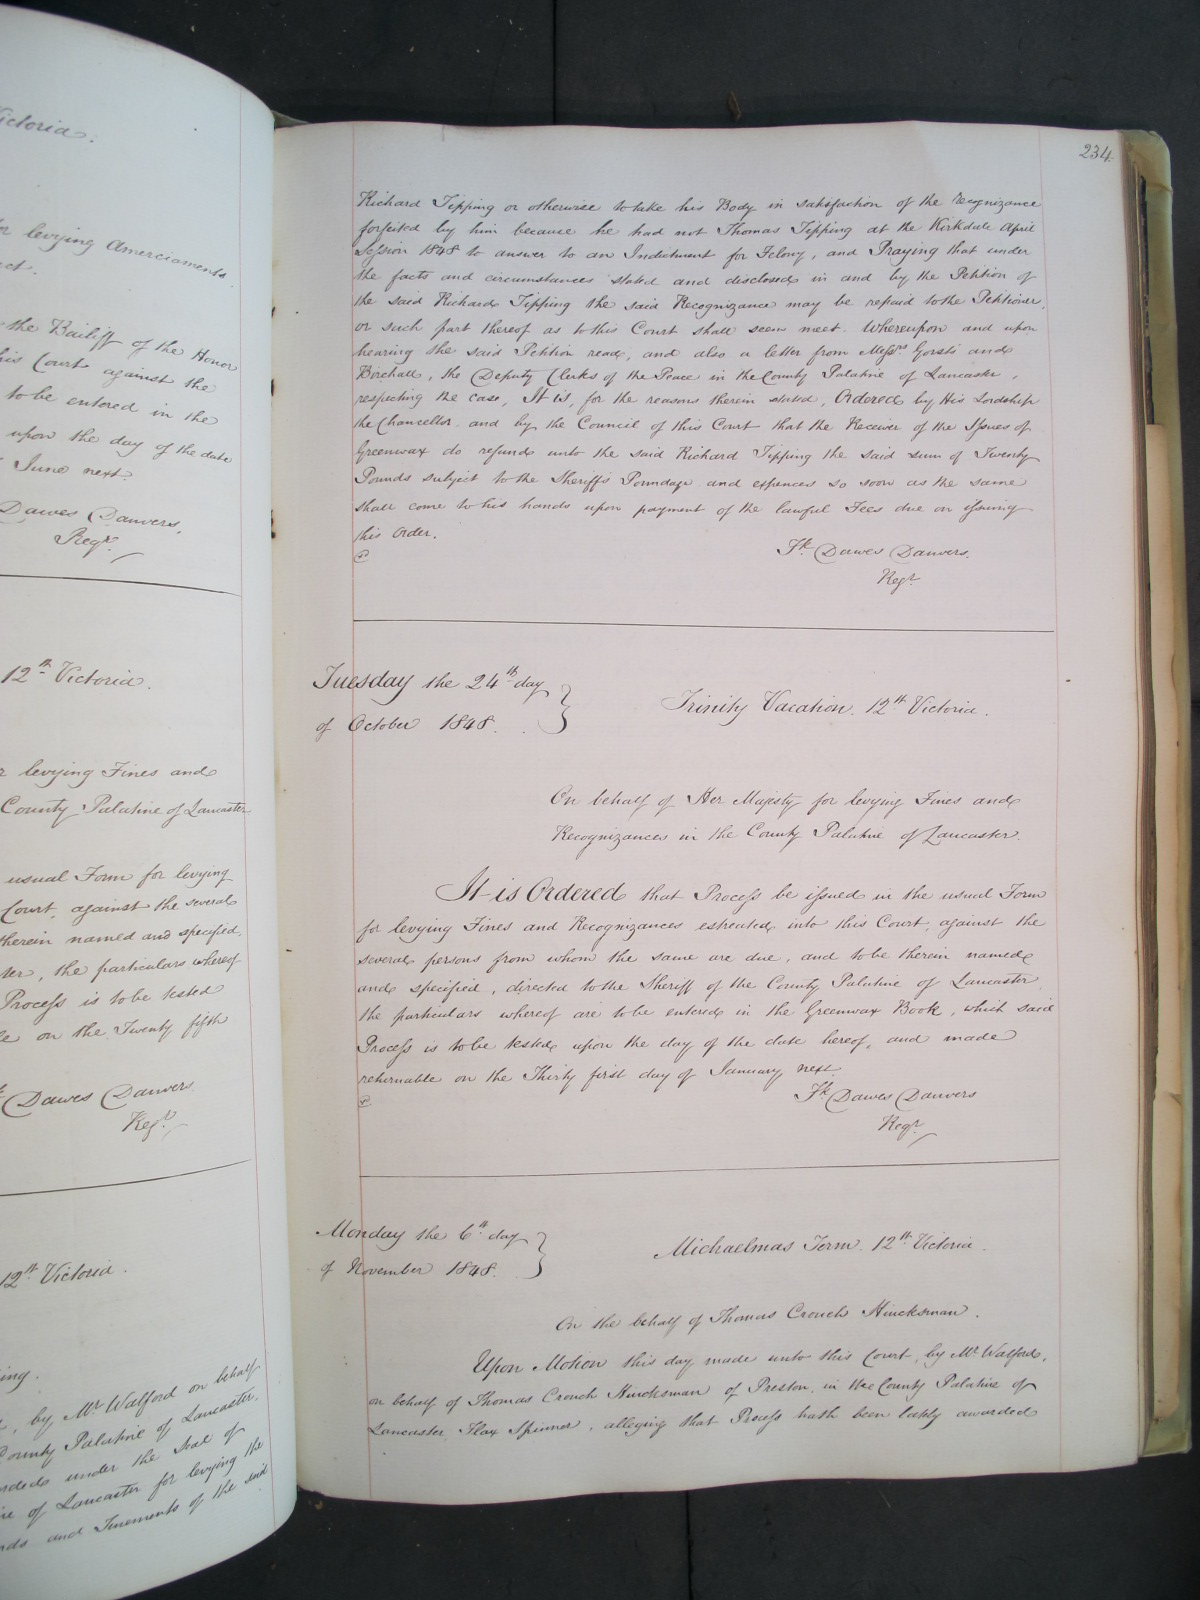 Victoria.
levying Amerciaments
the Bailiff of the Honor
his Court against the
to be entered in the
upon the day of the date
June next.
Dawes Danvers,
Regr.
12th Victoria.
levying Fines and
County Palatine of Lancaster
usual Form for levying
Court, against the several
therein named and specified,
the particulars whereof
Process is to be tested
on the Twenty fifth
Dawes Danvers
Regr.
12th Victoria.
by Mr Walford on behalf
County Palatine of Lancaster,
under the Seal of
of Lancaster for levying the
and Tenements of the said
234.
Richard Tipping or otherwise to take his Body in satisfaction of the recognizance
forfeited by him because he had not Thomas Tipping at the Kirkdale April
Session 1848 to answer to an Indictment for Felony, and Praying that under
the facts and circumstances stated and disclosed in and by the Petition of
the said Richard Tipping the said Recognizance may be repaid to the Petitioner,
or such part thereof as to this Court shall seem meet. Whereupon and upon
hearing the said Petition read, and also a letter from Messrs Gorst and
Birchall, the Deputy Clerks of the Peace in the County Palatine of Lancaster,
respecting the case, It is, for the reasons therein stated, Ordered by His Lordship
the Chancellor and by the Council of this Court that the Receiver of the Issues of
Greenwax do refund unto the said Richard Tipping the said sum of Twenty
Pounds subject to the Sheriff's Poundage and expences so soon as the same
shall come to his hands upon payment of the lawful Fees due on issuing
this Order.
Fk Dawes Danvers.
Regr.
Tuesday the 24th day
of October 1848.
Trinity Vacation. 12th Victoria.
On behalf of Her Majesty for levying Fines and
Recognizances in the County Palatine of Lancaster.
It is Ordered that Process be issued in the usual Form
for levying Fines and Recognizances estreated into this Court, against the
several persons from whom the same are due, and to be therein named
and specified, directed to the Sheriff of the County Palatine of Lancaster,
the particulars whereof are to be entered in the Greenwax Book, which said
Process is to be tested upon the day of the date hereof, and made
returnable on the Thirty first day of January next.
Fk Dawes Danvers
Regr.
Monday the 6th day
of November 1848.
Michaelmas Term. 12th Victoria.
On the behalf of Thomas Crouch Hincksman.
Upon Motion this day made unto this Court, by Mr Walford,
on behalf of Thomas Crouch Hincksman of Preston, in the County Palatine of
Lancaster, Flax Spinner, alleging that Process hath been lately awarded